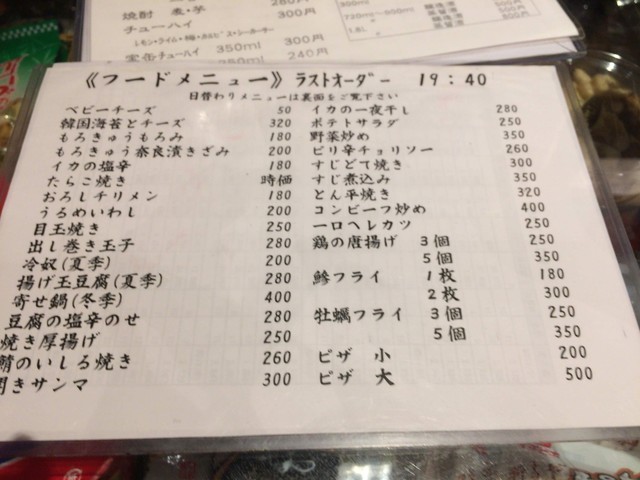 焼酎 麦・芋 300円
チューハイ
レモン・ライム・梅・カルピス・シークァーサー
宝缶チューハイ 350ml 300円
250ml 240円
720ml~900ml
1.8L
《フードメニュー》ラストオーダー 19:40
日替わりメニューは裏面をご覧下さい
ベビーチーズ 50
韓国海苔とチーズ 320
もろきゅうもろみ 180
もろきゅう奈良漬きざみ 200
イカの塩辛 180
たらこ焼き 時価
おろしチリメン 180
うるめいわし 200
目玉焼き 250
出し巻き玉子 280
冷奴(夏季) 200
揚げ玉豆腐(夏季) 280
寄せ鍋(冬季) 400
豆腐の塩辛のせ 280
焼き厚揚げ 250
鯖のいしる焼き 260
開きサンマ 300
イカの一夜干し 280
ポテトサラダ 250
野菜炒め 350
ピリ辛チョリソー 260
すじどて焼き 300
すじ煮込み 350
とん平焼き 320
コンビーフ炒め 400
一口ヘレカツ 250
鶏の唐揚げ 3個 250
5個 350
鯵フライ 1枚 180
2枚 300
牡蠣フライ 3個 250
5個 350
ピザ 小 200
ピザ 大 500